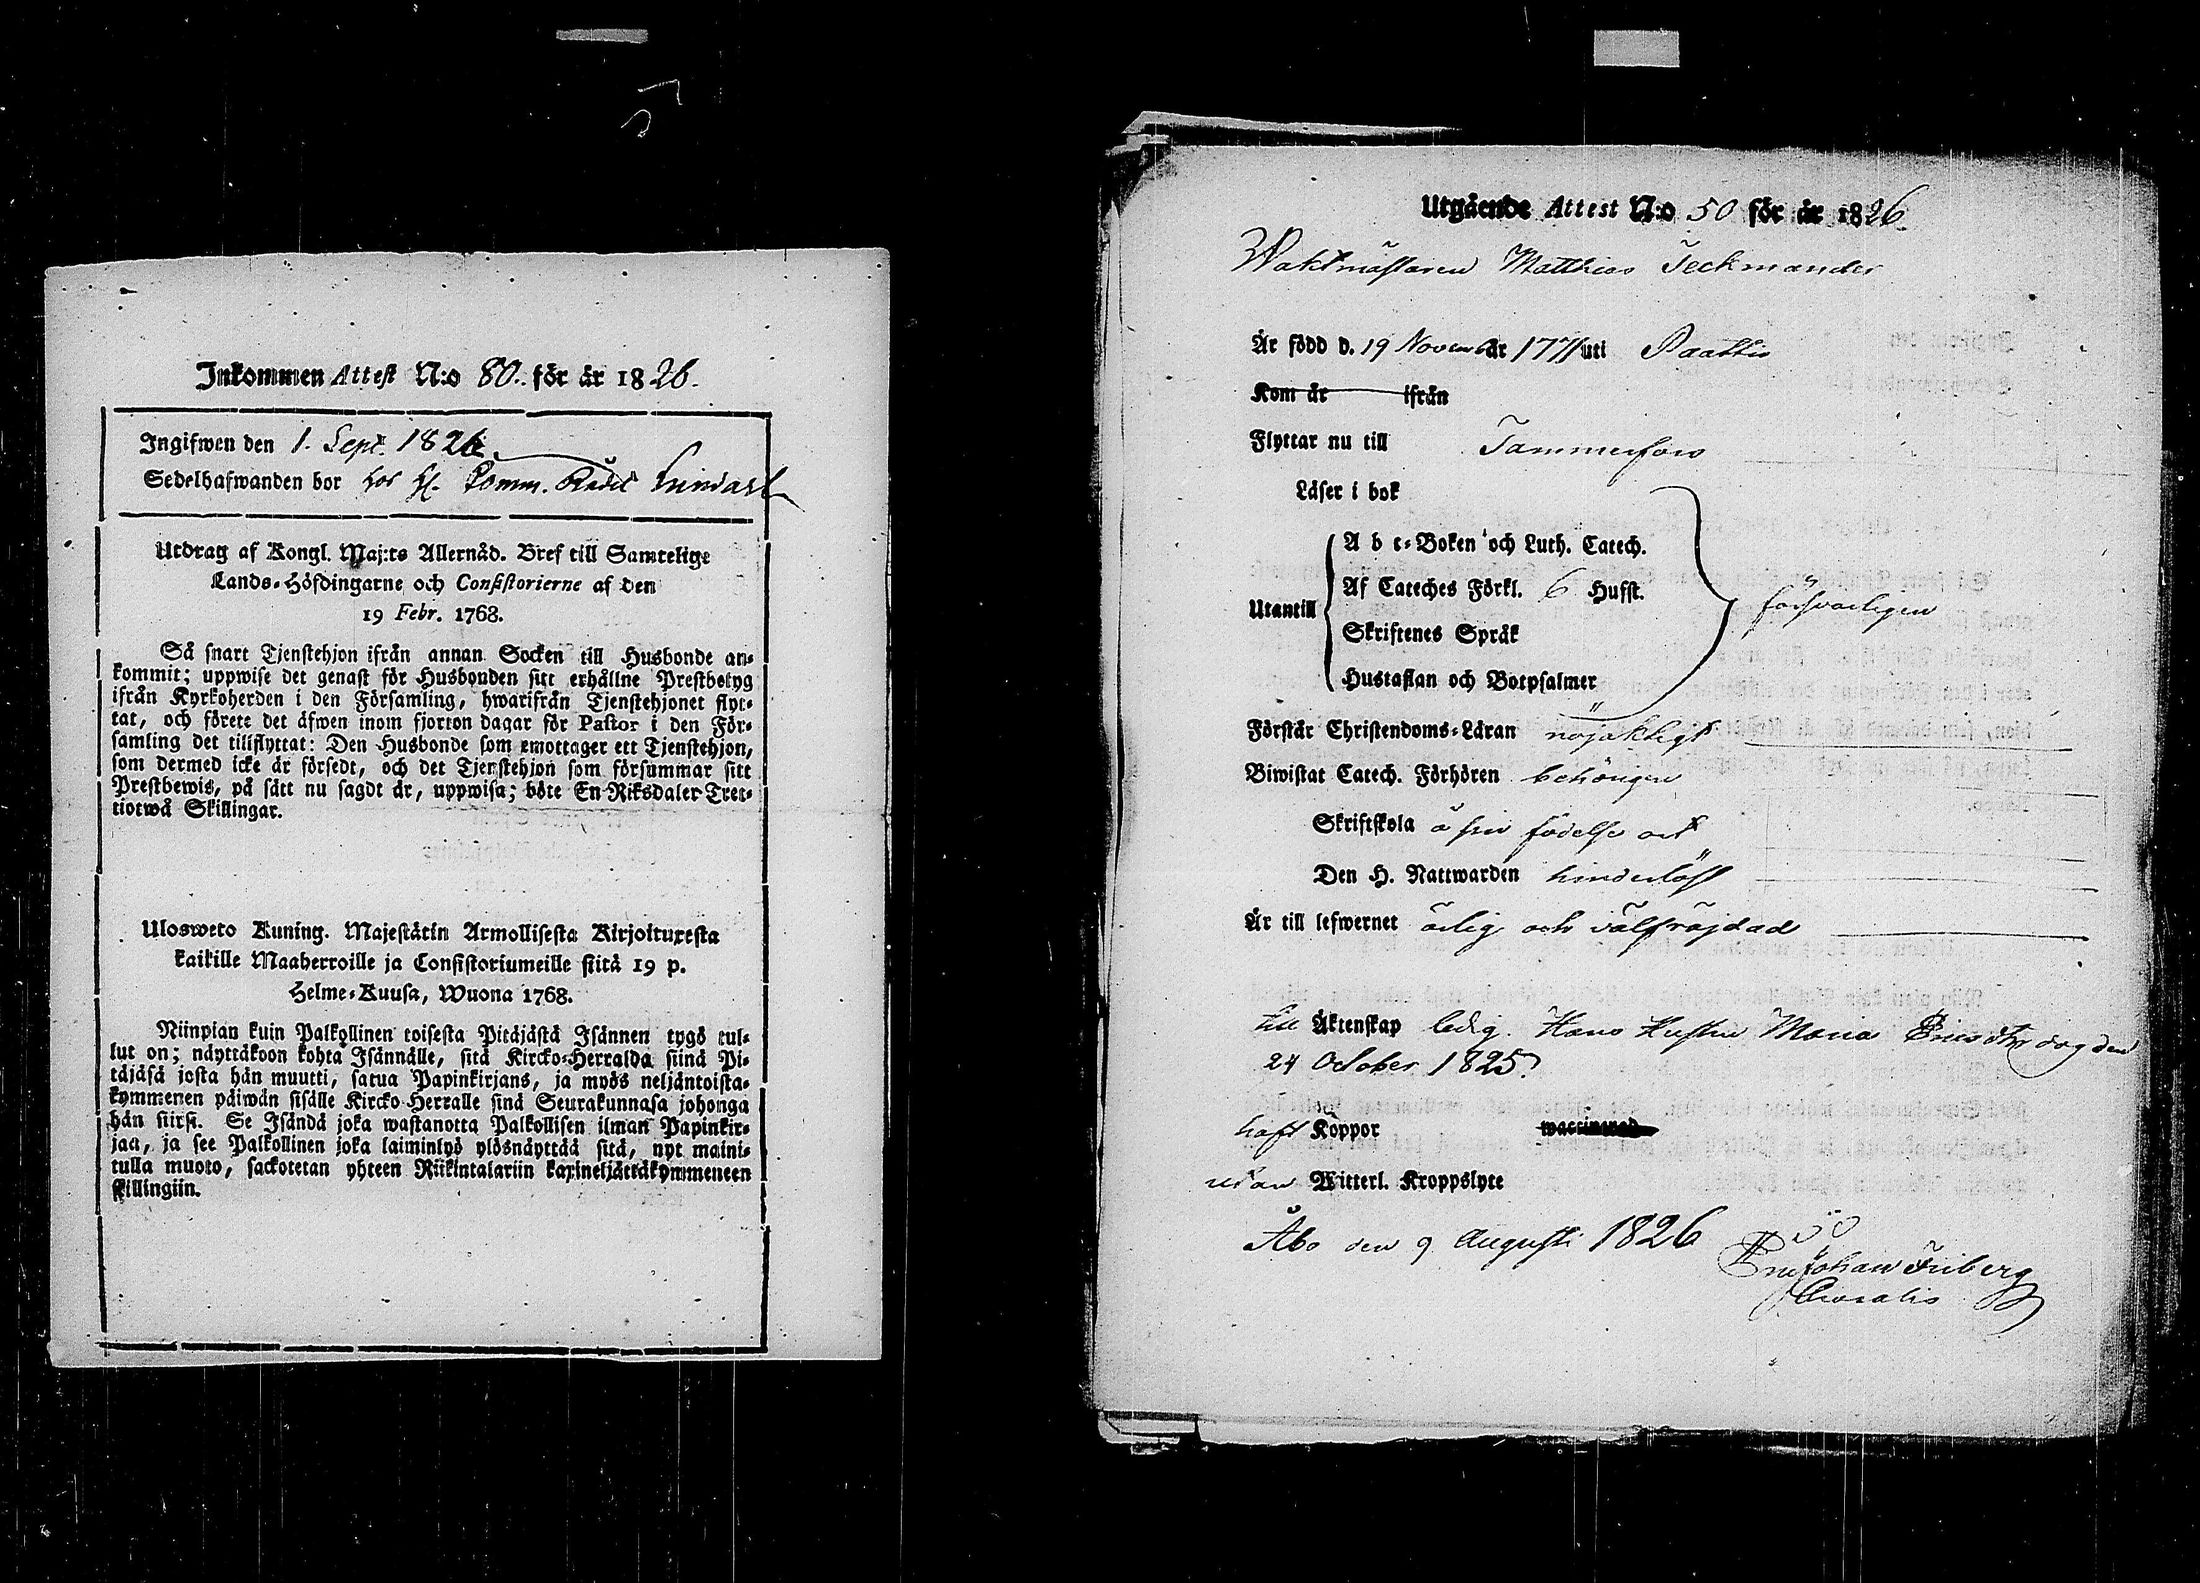 Inkommen Attest N:o 80. för år 1826.
Ingifwen den 1. Sept. 1826.
Sedelhafwanden bor hos H. Comm. Rådet
Utdrag af Kongl. Maj:ts Allernåd. Bref till Samtelige
Lands-Höfdingarne och Consistorierne af den
19 Febr. 1768.
Så snart Tjenstehjon ifrån annan Socken till Husbonde an-
kommit; uppwise det genast för Husbonden sitt erhållne Prestbetyg
ifrån Kyrkoherden i den Församling, hwarifrån Tjenstehjonet flyt-
tat, och förete det äfwen inom fjorton dagar för Pastor i den För-
samling det tillflyttat: Den Husbonde som emottager ett Tjenstehjon,
som dermed icke är försedt, och det Tjenstehjon som försummar sitt
Prestbewis, på sätt nu sagdt är, uppwisa; böte En Riksdaler Tret-
tiotwå Skillingar.
Ulosweto Kuning. Majestätin Armollisesta Kirjoituxesta
kaikille Maaherroille ja Consistoriumeille siitä 19 p.
Helme-Kuusa, Wuona 1768.
Niinpian kuin Palkollinen toisesta Pitäjästä Isännen tygö tul-
lut on; näyttäkoon kohta Isännälle, sitä Kircko-Herralda siinä Pi-
täjäsä josta hän muutti, satua Papinkirjans, ja myös neljäntoista-
kymmenen päiwän sisälle Kircko Herralle sinä Seurakunnasa johonga
hän siirsi. Se Isändä joka wastanotta Palkollisen ilman Papinkir-
jaa, ja see Palkollinen joka laiminlyö ylösnäyttää sitä, nyt maini-
tulla muoto, sackotetan yhteen Riikintalariin kaxineljättäkymmeneen
killingiin.
Utgående Attest N:o 50 för år 1826.
Waktmästaren Matthias Teckmander
Är född d. 19 November år 1771 uti Paattis
Kom år ifrån
Flyttar nu till Tammerfors
Läser i bok
A b c-Boken och Luth. Catech.
Af Cateches Förkl. 6 Hufst.
Utantill försvarligen
Skriftenes Språk
Hustaflan och Botpsalmer
Förstår Christendoms-Läran nöjaktigt
Biwistat Catech. Förhören behörigen
Skriftskola å sin födelse ort
Den H. Nattwarden hinderlöst
Är till lefwernet ärlig och välfräjdad
till Äktenskap ledig. Hans Hustru Maria Ericsdtr dog den
24 October 1825.
haft Koppor
utan Witterl. Kroppslyte
Åbo den 9 Augusti 1826
Johan Friberg